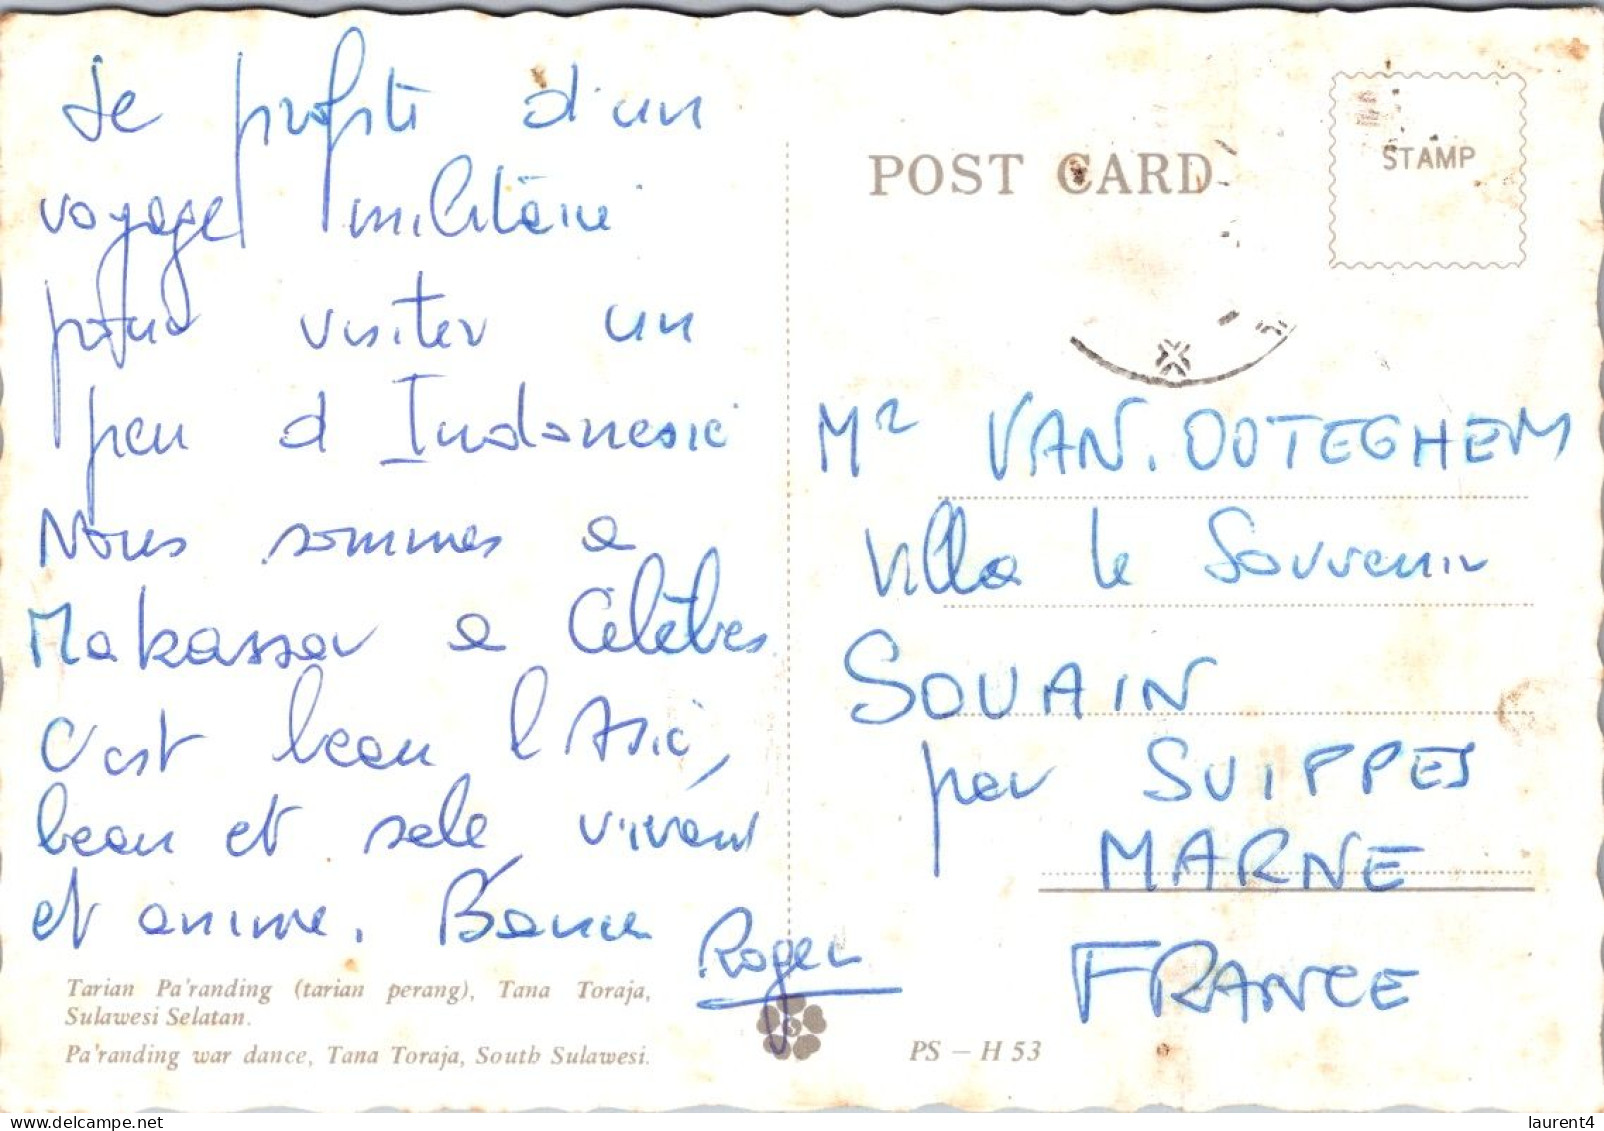 Je profite d'un
voyage militaire
pour visiter un
peu d Indonesie
Nous sommes a
Makassar a Célèbes
C'est beau l'Asie,
beau et sale, vivant
et animé.
Roger
Tarian Pa'randing (tarian perang), Tana Toraja,
Sulawesi Selatan.
Pa'randing war dance, Tana Toraja, South Sulawesi.
POST CARD
STAMP
Mr VAN. OOTEGHEM
Villa le Souvenir
SOUAIN
par SUIPPES
MARNE
FRANCE
PS – H 53
delcampe.net
laurent4